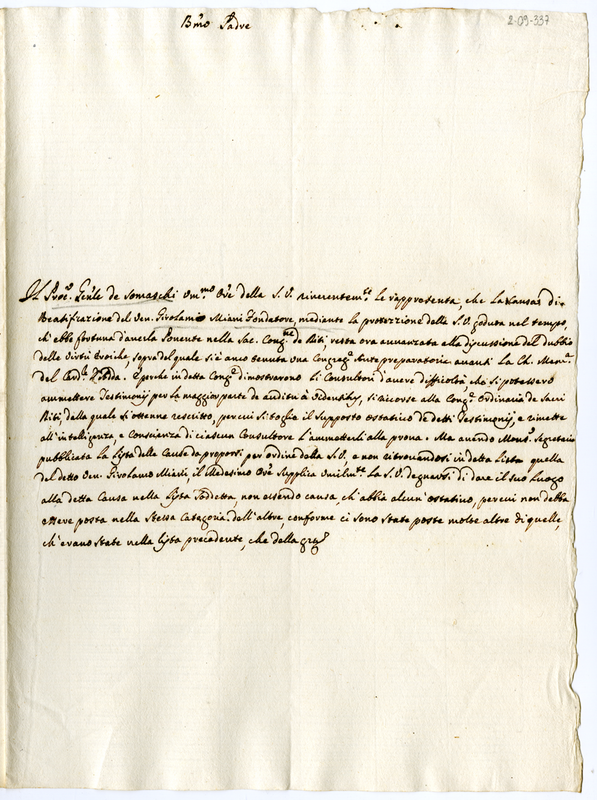 Bmo Padre
2-09-337
Il Proc. Genle de Somaschi Um.mo Ore della S. V. riverentem.te le rappresenta, che la Causa di
Beatificazione del Ven. Girolamo Miani Fondatore, mediante la protezzione della S. V. goduta nel tempo,
ch'ebbe fortuna d'averla Ponente nella Sac. Cong.ne de Riti, resta ora avanzata alla discussione del dubbio
delle Virtù Eroiche, sopra del quale si è anco tenuta una Congreg. antepreparatoria avanti la Ch. Mem.a
del Card.le d'Adda. E perche in detta Cong.e dimostrarono li Consultori d'avere difficoltà, che si potessero
ammettere Testimonij per la maggior parte de auditu à videntibus, si ricorse alla Cong.e Ordinaria de Sacri
Riti, dalla quale si ottenne rescritto, per cui si toglie il supposto ostativo de detti Testimonij, e rimette
all'intelligenza, e Conscienza di ciascun Consultore l'ammetterli alla prova. Ma avendo Mons.r Segretario
pubblicata la Lista delle Cause da proporsi per ordine della S. V. e non ritrovandosi in detta Lista quella
del detto Ven. Girolamo Miani, il Medesimo Ore supplica umilm.te la S. V. degnarsi di dare il suo luogo
alla detta Causa nella Lista sodetta, non essendo causa, ch'abbia alcun'ostativo, per cui non debba
essere posta nella stessa Categoria dell'altre, conforme ci sono state poste molte altre di quelle,
ch'erano state nella lista precedente, che della